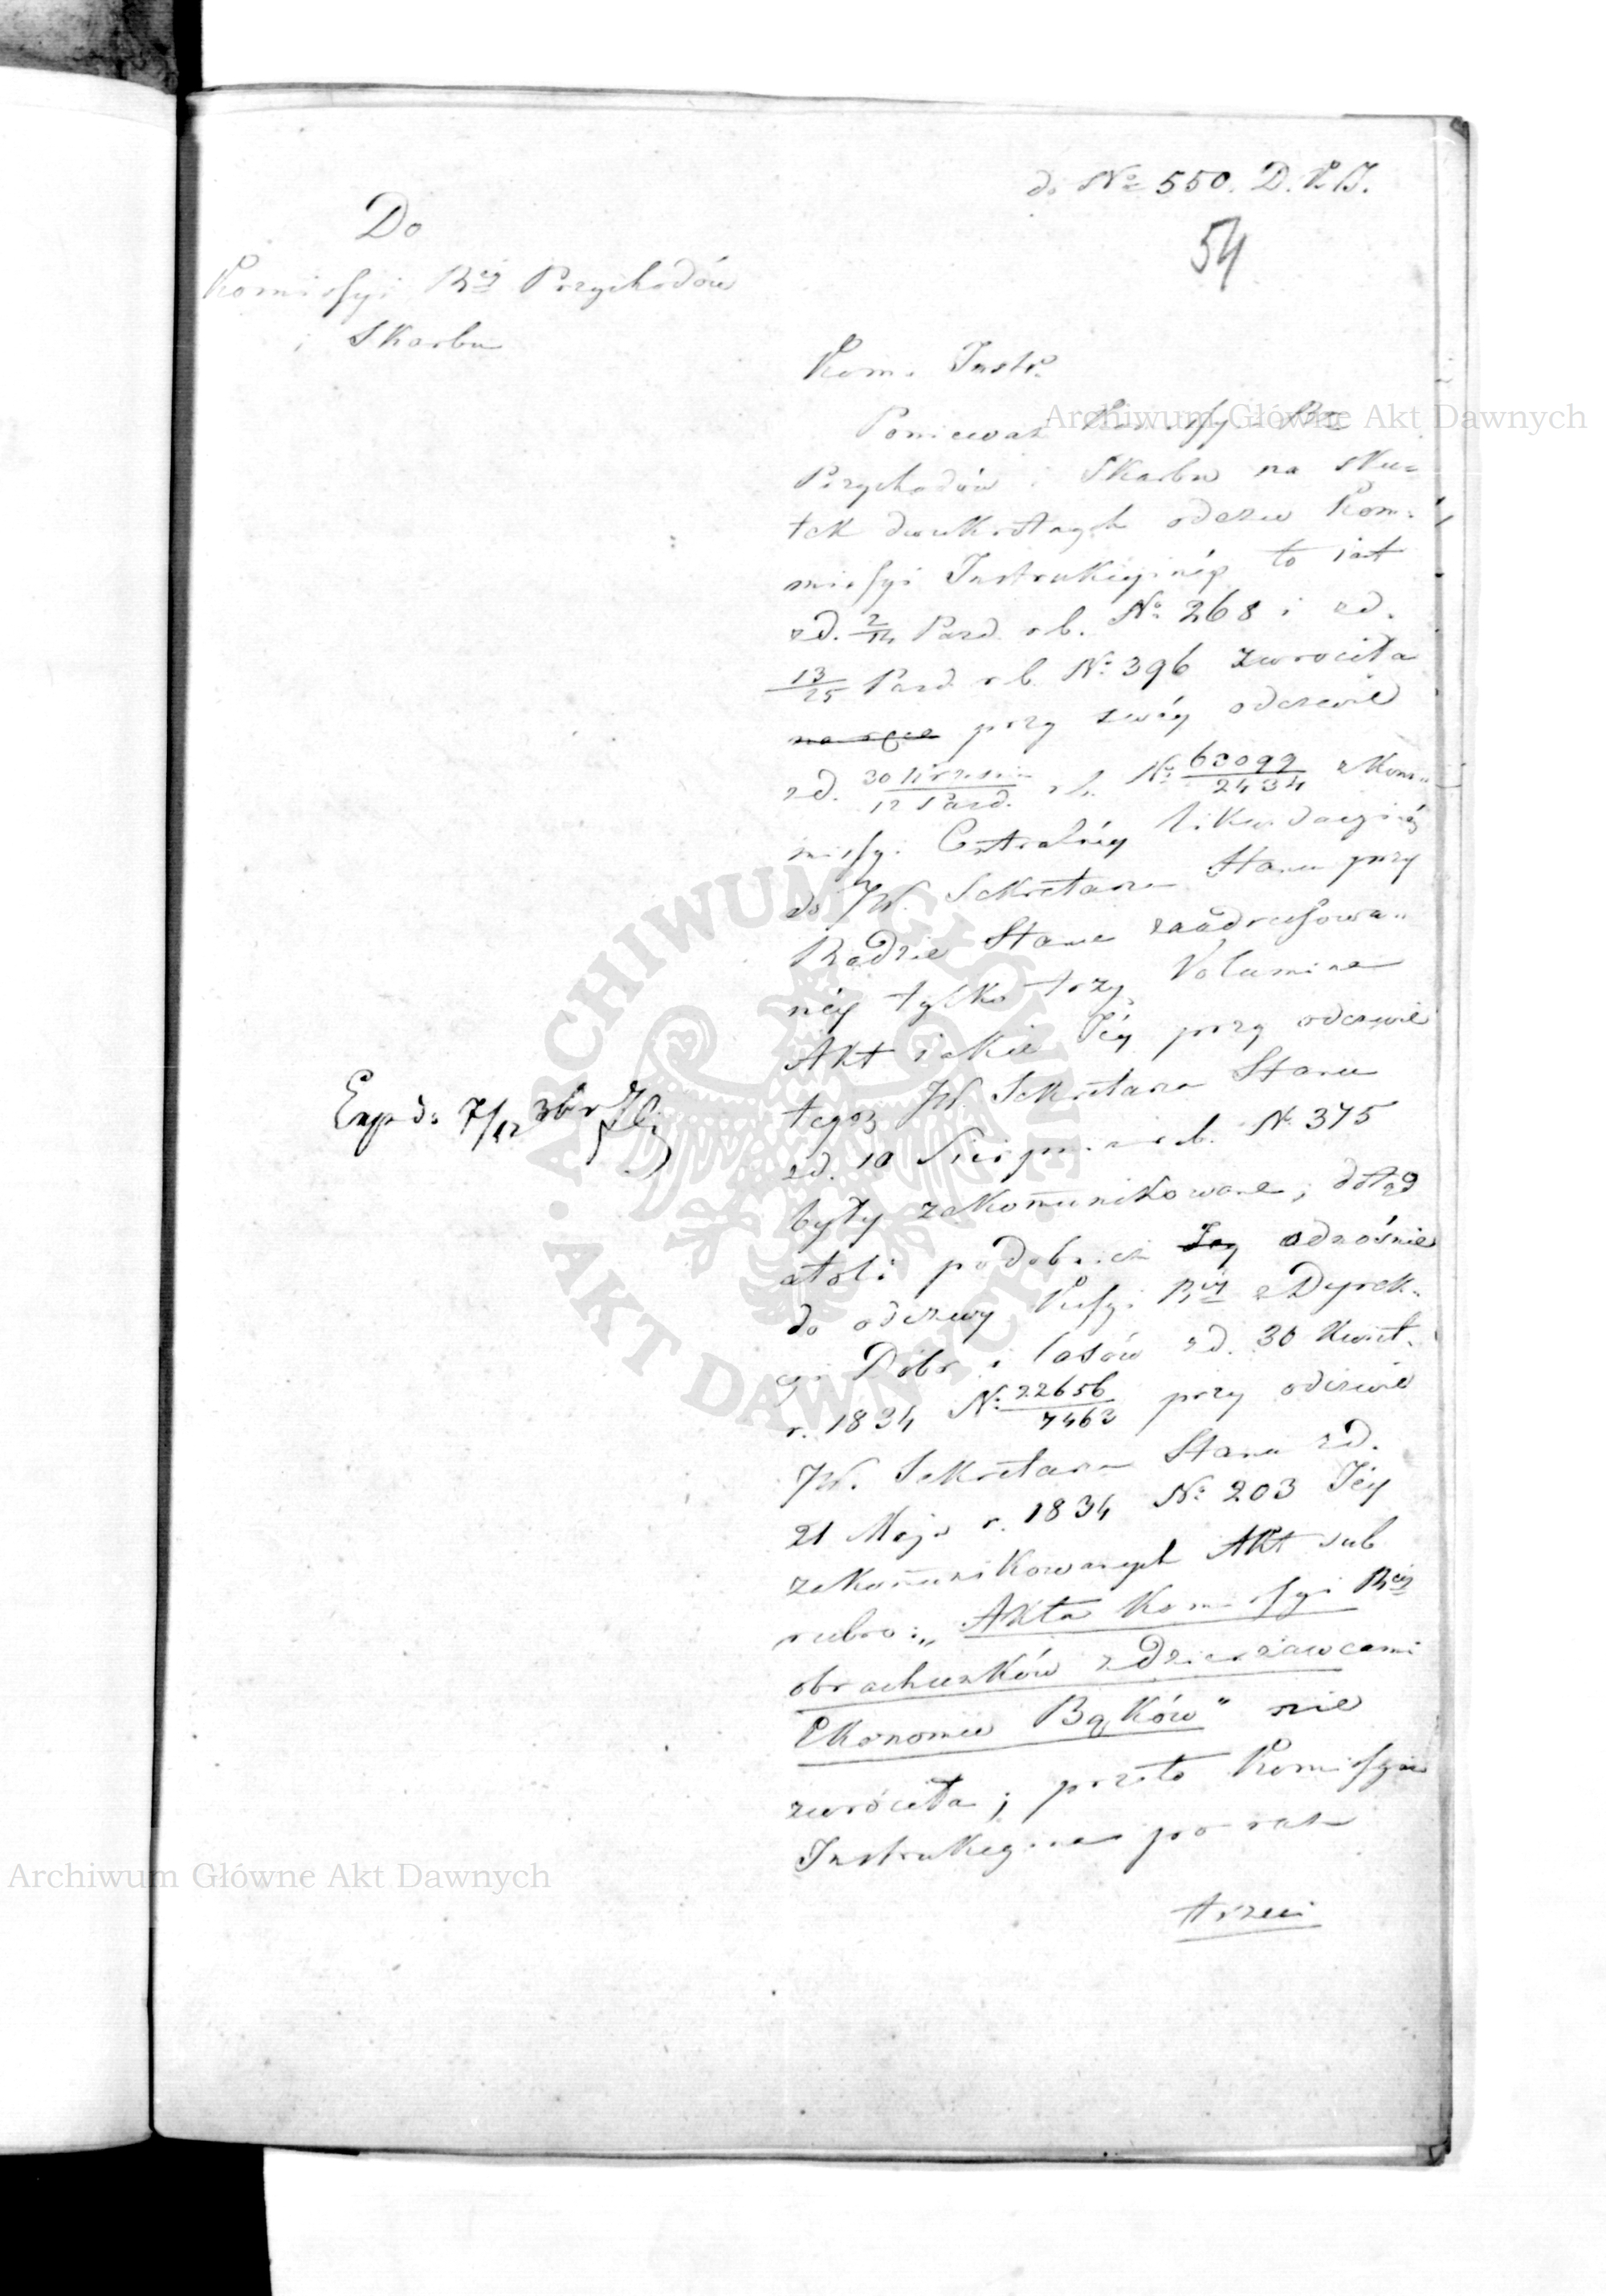 do № 550. D. K. J.
54
Do
Komissyi Rey Przychodów
i Skarbu
Kom. Instr.
Ponieważ Komissya Rz
Przychodów i Skarbu na sku=
tek dwukrotnych odezw Kom=
missyi Instrukcyinéy to iest
zd. 2/14 Pazd. r b. № 268 i zd.
13/25 Pazd. r b. № 396 zwrociła
na ręce przy swéy odezwie
zd. 30 Wrzesnia/12 Pazd. r b. № 63099/2434 z Kom=
missyi Centralnéy Likwidacyinéy
do JW. Sekretarza Stanu przy
Radzie Stanu zaadressowa=
néy tylko trzy Volumina
Akt iakie Jéy przy odezwie
tegoż JW. Sekretarza Stanu
zd. 10 Sierpnia r b. № 375
były zakomunikowane; dotąd
atoli podobnież Jey odnośnie
do odezwy Kissyi Rey z Dyrek=
cyi Dóbr i Lasów zd. 30 Kwiet.
r. 1834 № 22656/7463 przy odezwie
JW. Sekretarza Stanu zd.
21 Maja r. 1834 № 203 Jéy
zakomunikowanych Akt sub
rubro: „Akta Komissyi Rey
obrachunków z Dzierżawcami
Ekonomii Bąków" nie
zwróciła; przeto Komissya
Instrukcyina po raz
trzeci
Exp. d. 7/12 3br
Archiwum Główne Akt Dawnych
Archiwum Główne Akt Dawnych
ARCHIWUM GŁÓWNE · AKT DAWNYCH ·